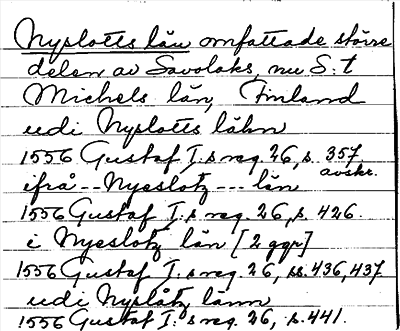 Nyslotts län omfattade större
delen av Savolaks, nu S:t
Michels län, Finland
udi Nyslotts lähn
1556 Gustaf I:s reg. 26, s. 357.
avskr.
ifrå -- Nyeslotz --- län
1556 Gustaf I:s reg. 26, s. 426
i Nyeslotz län [2 ggr]
1556 Gustaf I:s reg. 26, ss. 436, 437
udi Nyslåtz länn
1556 Gustaf I:s reg. 26, s. 441.